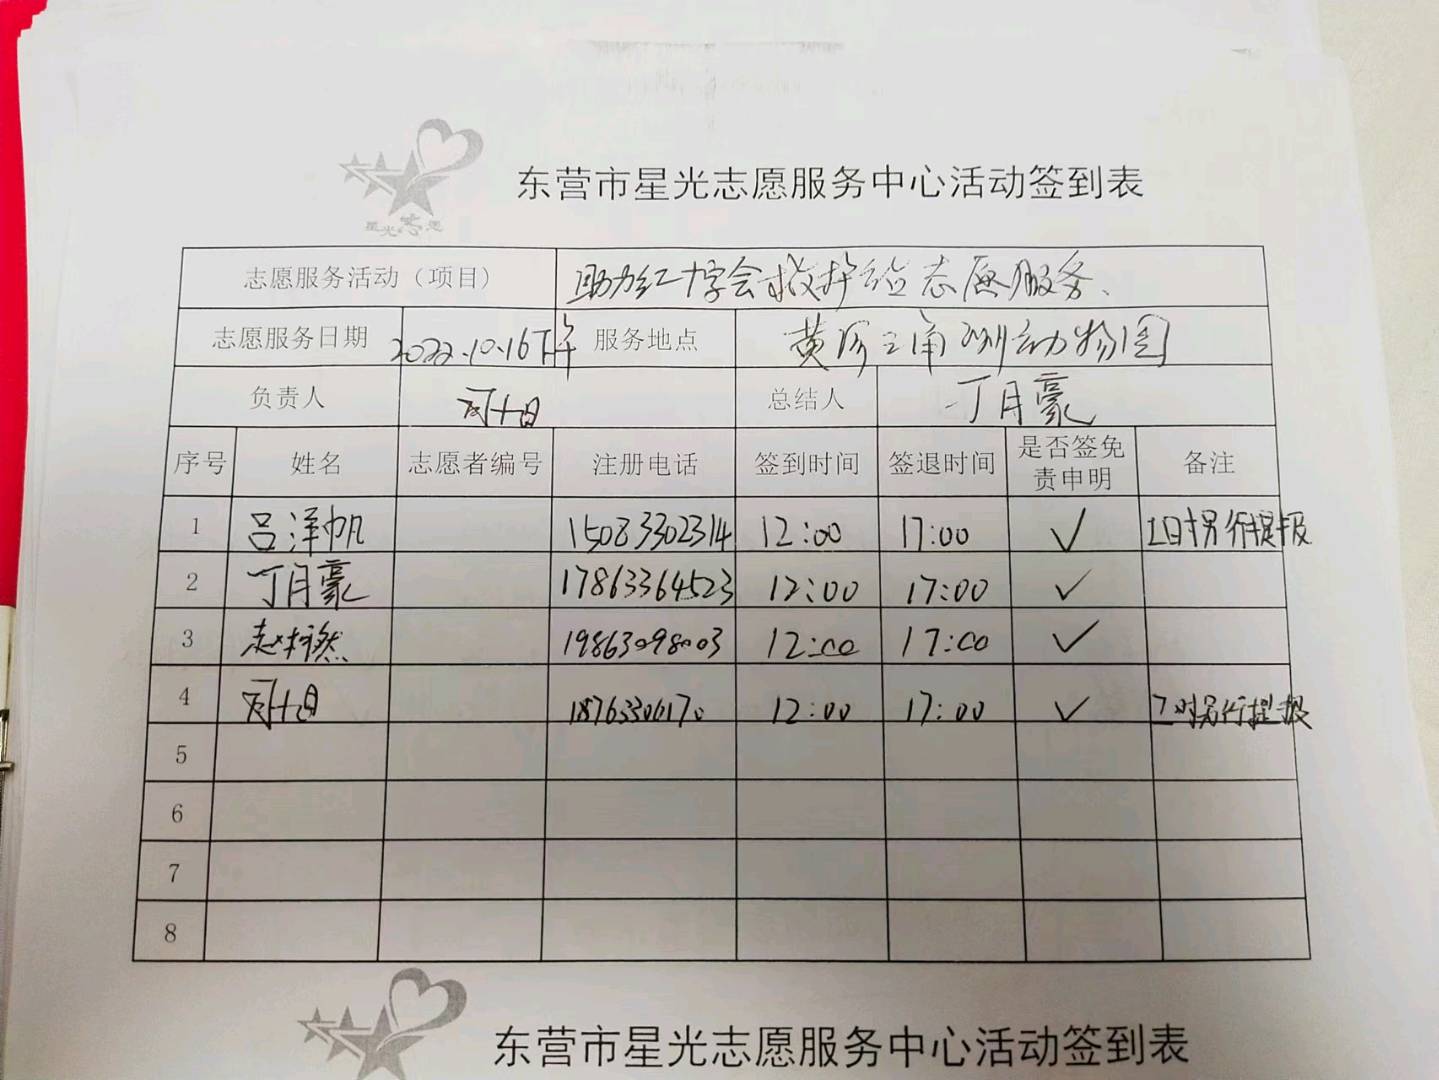 星光志愿
东营市星光志愿服务中心活动签到表
志愿服务活动（项目） 助力红十字会救护站志愿服务、
志愿服务日期 2022.10.16下午 服务地点 黄河三角洲动物园
负责人 总结人 丁月豪
序号 姓名 志愿者编号 注册电话 签到时间 签退时间 是否签免责申明 备注
1 吕泽帆 15083302314 12:00 17:00 ✓ 工时另行提报
2 丁月豪 17863364523 12:00 17:00 ✓
3 赵梓然 19863098003 12:00 17:00 ✓
4 12:00 17:00 ✓ 工时另行提报
5
6
7
8
东营市星光志愿服务中心活动签到表